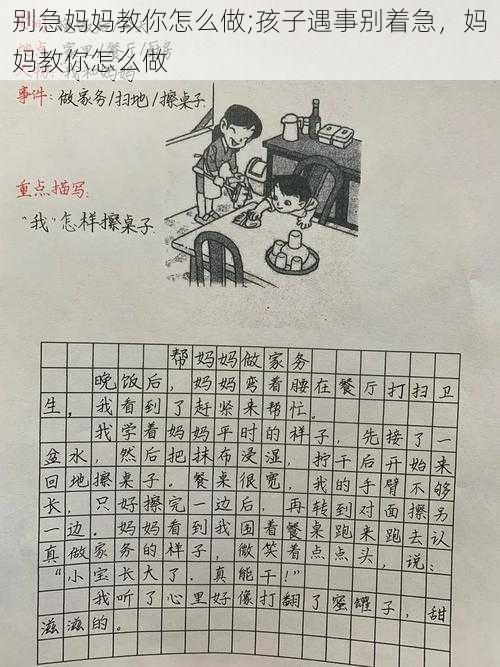 别急妈妈教你怎么做;孩子遇事别着急，妈
妈教你怎么做
事件: 做家务/扫地/擦桌子
重点描写:
"我"怎样擦桌子
帮妈妈做家务
晚饭后，妈妈弯着腰在餐厅打扫卫
生，我看到了赶紧来帮忙。
我学着妈妈平时的样子，先接了一
盆水，然后把抹布浸湿，拧干后开始来
回地擦桌子。餐桌很宽，我的手臂不够
长，只好擦完一边后，再转到对面擦另
一边。妈妈看到我围着餐桌跑来跑去认
真做家务的样子，微笑着点点头，说：
"小宝长大了，真能干！"
我听了心里好像打翻了蜜罐子，甜
滋滋的。